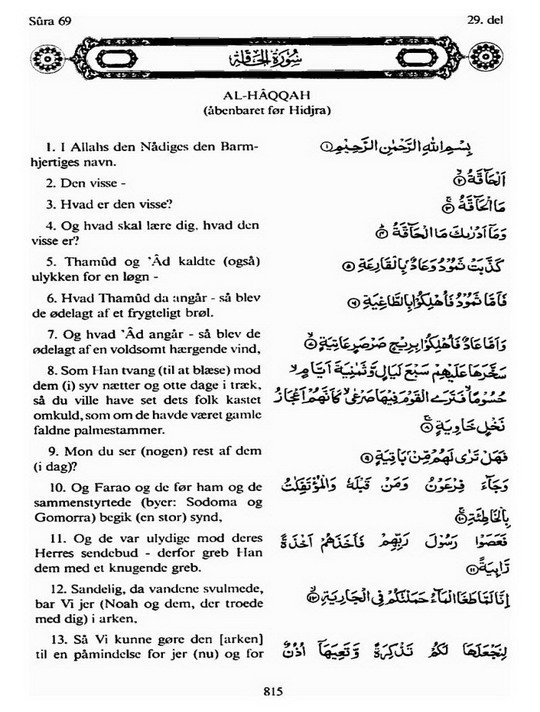 Sûra 69
29. del
سُورَةُ الْحَاقَّةِ
AL-HÂQQAH
(åbenbaret før Hidjra)
1. I Allahs den Nådiges den Barm-
hjertiges navn.
بِسْمِ اللهِ الرَّحْمٰنِ الرَّحِيْمِ ①
2. Den visse -
اَلْحَآقَّةُ ②
3. Hvad er den visse?
مَا الْحَآقَّةُ ③
4. Og hvad skal lære dig, hvad den
visse er?
وَمَآ اَدْرٰىكَ مَا الْحَآقَّةُ ④
5. Thamûd og `Âd kaldte (også)
ulykken for en løgn -
كَذَّبَتْ ثَمُوْدُ وَعَادٌۢ بِالْقَارِعَةِ ⑤
6. Hvad Thamûd da angår - så blev
de ødelagt af et frygteligt brøl.
فَاَمَّا ثَمُوْدُ فَاُهْلِكُوْا بِالطَّاغِيَةِ ⑥
7. Og hvad `Âd angår - så blev de
ødelagt af en voldsomt hærgende vind,
وَاَمَّا عَادٌ فَاُهْلِكُوْا بِرِيْحٍ صَرْصَرٍ عَاتِيَةٍ ⑦
8. Som Han tvang (til at blæse) mod
dem (i) syv nætter og otte dage i træk,
så du ville have set dets folk kastet
omkuld, som om de havde været gamle
faldne palmestammer.
سَخَّرَهَا عَلَيْهِمْ سَبْعَ لَيَالٍ وَّثَمٰنِيَةَ اَيَّامٍ
حُسُوْمًا فَتَرَى الْقَوْمَ فِيْهَا صَرْعٰى كَاَنَّهُمْ اَعْجَازُ
نَخْلٍ خَاوِيَةٍ ⑧
9. Mon du ser (nogen) rest af dem
(i dag)?
فَهَلْ تَرٰى لَهُمْ مِّنْۢ بَاقِيَةٍ ⑨
10. Og Farao og de før ham og de
sammenstyrtede (byer: Sodoma og
Gomorra) begik (en stor) synd,
وَجَآءَ فِرْعَوْنُ وَمَنْ قَبْلَهٗ وَالْمُؤْتَفِكٰتُ
بِالْخَاطِئَةِ ⑩
11. Og de var ulydige mod deres
Herres sendebud - derfor greb Han
dem med et knugende greb.
فَعَصَوْا رَسُوْلَ رَبِّهِمْ فَاَخَذَهُمْ اَخْذَةً
رَّابِيَةً ⑪
12. Sandelig, da vandene svulmede,
bar Vi jer (Noah og dem, der troede
med dig) i arken,
اِنَّا لَمَّا طَغَا الْمَآءُ حَمَلْنٰكُمْ فِى الْجَارِيَةِ ⑫
13. Så Vi kunne gøre den [arken]
til en påmindelse for jer (nu) og for
لِنَجْعَلَهَا لَكُمْ تَذْكِرَةً وَّتَعِيَهَآ اُذُنٌ
815